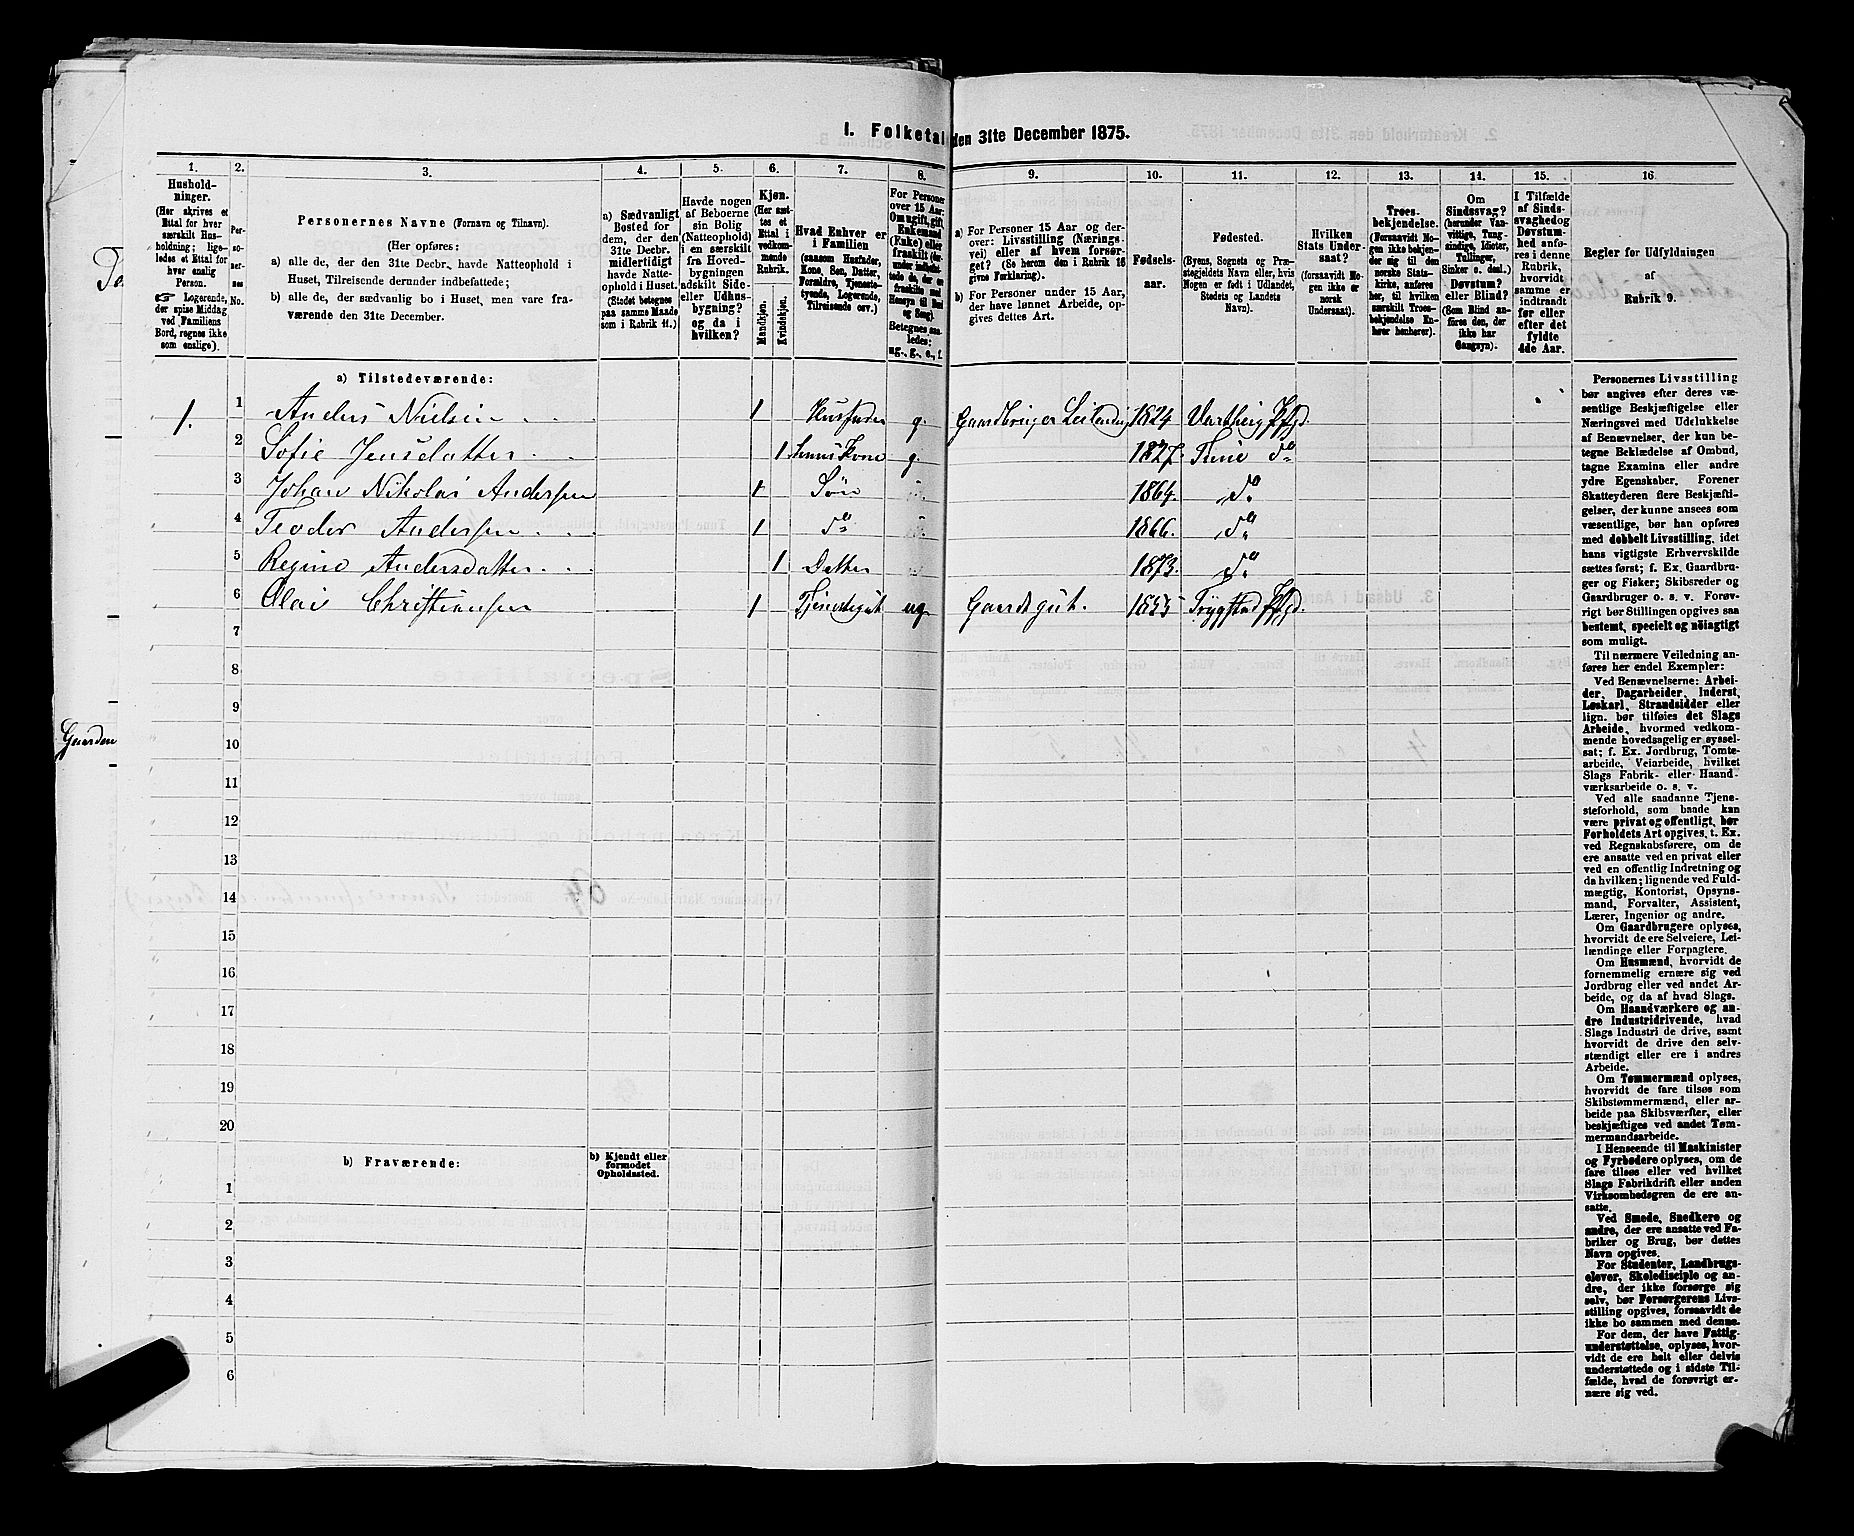 I. Folketal den 31te December 1875.
1. 2. 3. 4. 5. 6. 7. 8. 9. 10. 11. 12. 13. 14. 15. 16
Husholdninger.
(Her skrives et
Ettal for hver
særskilt Husholdning; ligeledes et Ettal for
hver enslig
Person.
☞ Logerende,
der spise Middag
ved Familiens
Bord, regnes ikke
som enslige).
Personernes No.
Personernes Navne (Fornavn og Tilnavn).
(Her opføres:
a) alle de, der den 31te Decbr. havde Natteophold i
Huset, Tilreisende derunder indbefattede;
b) alle de, der sædvanlig bo i Huset, men vare fraværende den 31te December.
a) Sædvanligt
Bosted for
dem, der den
31te Decbr.
midlertidigt
havde Natteophold i Huset.
(Stedet betegnes
paa samme Maade
som i Rubrik 11.)
Havde nogen
af Beboerne
sin Bolig
(Natteophold)
i en særskilt
fra Hovedbygningen
adskilt Side-
eller Udhusbygning?
og da i
hvilken?
Kjøn.
(Her sættes et
Ettal i
vedkommende
Rubrik.
Mandkjøn.
Kvindekjøn.
Hvad Enhver er
i Familien
(saasom Husfader,
Kone, Søn, Datter,
Forældre, Tjenestetyende, Logerende,
Tilreisende osv.)
For Personer
over 15 Aar:
Om ugift, gift,
Enkemand
(Enke) eller
fraskilt
Betegnes saaledes:
ug., g., e., f.
a) For Personer 15 Aar og derover: Livsstilling (Næringsvei) eller af hvem forsørget? (Se herom den i Rubrik 16
givne Forklaring).
b) For Personer under 15 Aar,
der have lønnet Arbeide, opgives dettes Art.
Fødselsaar.
Fødested.
(Byens, Sognets og Præstegjeldets Navn eller, hvis
Nogen er født i Udlandet,
Stedets og Landets
Navn).
Hvilken
Stats Undersaat?
(forsaavidt Nogen ikke er
norsk
Undersaat).
Troesbekjendelse.
(Forsaavidt Nogen ikke bekjender sig til den
norske Statskirke, anføres
her, til hvilken
særskilt Troesbekjendelse Enhver henhører).
Om
Sindssvag?
(herunder Vanvittige, Tungsindige, Idioter,
Tullinger,
Sinker o. desl.)
Døvstum?
eller Blind?
(Som Blind anføres den, der
ikke har
Gangsyn).
I Tilfælde
af Sindssvaghed og
Døvstumhed anføres i denne
Rubrik,
hvorvidt
samme er
indtraadt
før eller
efter det
fyldte
4de Aar.
Regler for Udfyldningen
af
Rubrik 9.
a) Tilstedeværende:
1. 1 Anders Nielsen 1 Husfader g. Gaardbruger Leilending 1824 Vartheig Pfgd.
2 Sofie Jensdatter 1 hans Kone g. 1827. Tune do
3 Johan Nikolai Andersen 1 Søn 1864. do
4 Teodor Andersen 1 do 1866. do
5 Regine Andersdatter 1 Datter 1873. do
6 Olai Christiansen 1 Tjenestegut ug. Gaardsgut. 1855 Trygstad Pfgd.
7
8
9
Gaarden
10
11
12
13
14
15
16
17
18
19
20
b) Fraværende:
b) Kjendt eller
formodet
Opholdssted.
1
2
3
4
5
6
Personernes Livsstilling
bør angives efter deres væsentlige Beskjæftigelse eller
Næringsvei med Udelukkelse
af Benævnelser, der kun betegne Beklædelse af Ombud,
tagne Examina eller andre
ydre Egenskaber. Forener
Skatteyderen flere Beskjæftigelser, der kunne ansees som
væsentlige, bør han opføres
med dobbelt Livsstilling, idet
hans vigtigste Erhvervskilde
sættes først; f. Ex. Gaardbruger og Fisker; Skibsreder og
Gaardbruger o. s. v. Forøvrigt bør Stillingen opgives saa
bestemt, specielt og nøiagtigt
som muligt.
Til nærmere Veiledning anføres her endel Exempler:
Ved Benævnelserne: Arbeider, Dagarbeider, Inderst,
Løskarl, Strandsidder eller
lign. bør tilføies det Slags
Arbeide, hvormed vedkommende hovedsagelig er sysselsat; f. Ex. Jordbrug, Tomtearbeide, Veiarbeide, hvilket
Slags Fabrik- eller Haandværksarbeide o. s. v.
Ved alle saadanne Tjenesteforhold, som baade kan
være privat og offentligt, bør
Forholdets Art opgives, t. Ex.
ved Regnskabsførere, om de
ere ansatte ved en privat eller
ved en offentlig Indretning og
da hvilken; lignende ved Fuldmægtig, Kontorist, Opsynsmand, Forvalter, Assistent,
Lærer, Ingeniør og andre.
Om Gaardbrugere oplyses,
hvorvidt de ere Selveiere, Leilændinge eller Forpagtere.
Om Husmænd, hvorvidt de
fornemmelig ernære sig ved
Jordbrug eller ved andet Arbeide, og da af hvad Slags.
Om Haandværkere og andre Industridrivende, hvad
Slags Industri de drive, samt
hvorvidt de drive den selvstændigt eller ere i andres
Arbeide.
Om Tømmermænd oplyses,
hvorvidt de fare tilsøs som
Skibstømmermænd, eller arbeide paa Skibsværfter, eller
beskjæftiges ved andet Tømmermandsarbeide.
I Henseende til Maskinister
og Fyrbødere oplyses, om de
fare tilsøs eller ved hvilket
Slags Fabrikdrift eller anden
Virksomhedsgren de ere ansatte.
Ved Smede, Snedkere og
andre, der ere ansatte ved Fabriker og Brug, bør dettes
Navn opgives.
For Studenter, Landbrugselever, Skoledisciple og andre, der ikke forsørge sig
selv, bør Forsørgerens Livsstilling opgives, forsaavidt de
ikke bo sammen med denne.
For dem, der have Fattigunderstøttelse, oplyses, hvorvidt de ere helt eller delvis
understøttede og i sidste Tilfælde, hvad de forøvrigt ernære sig ved.